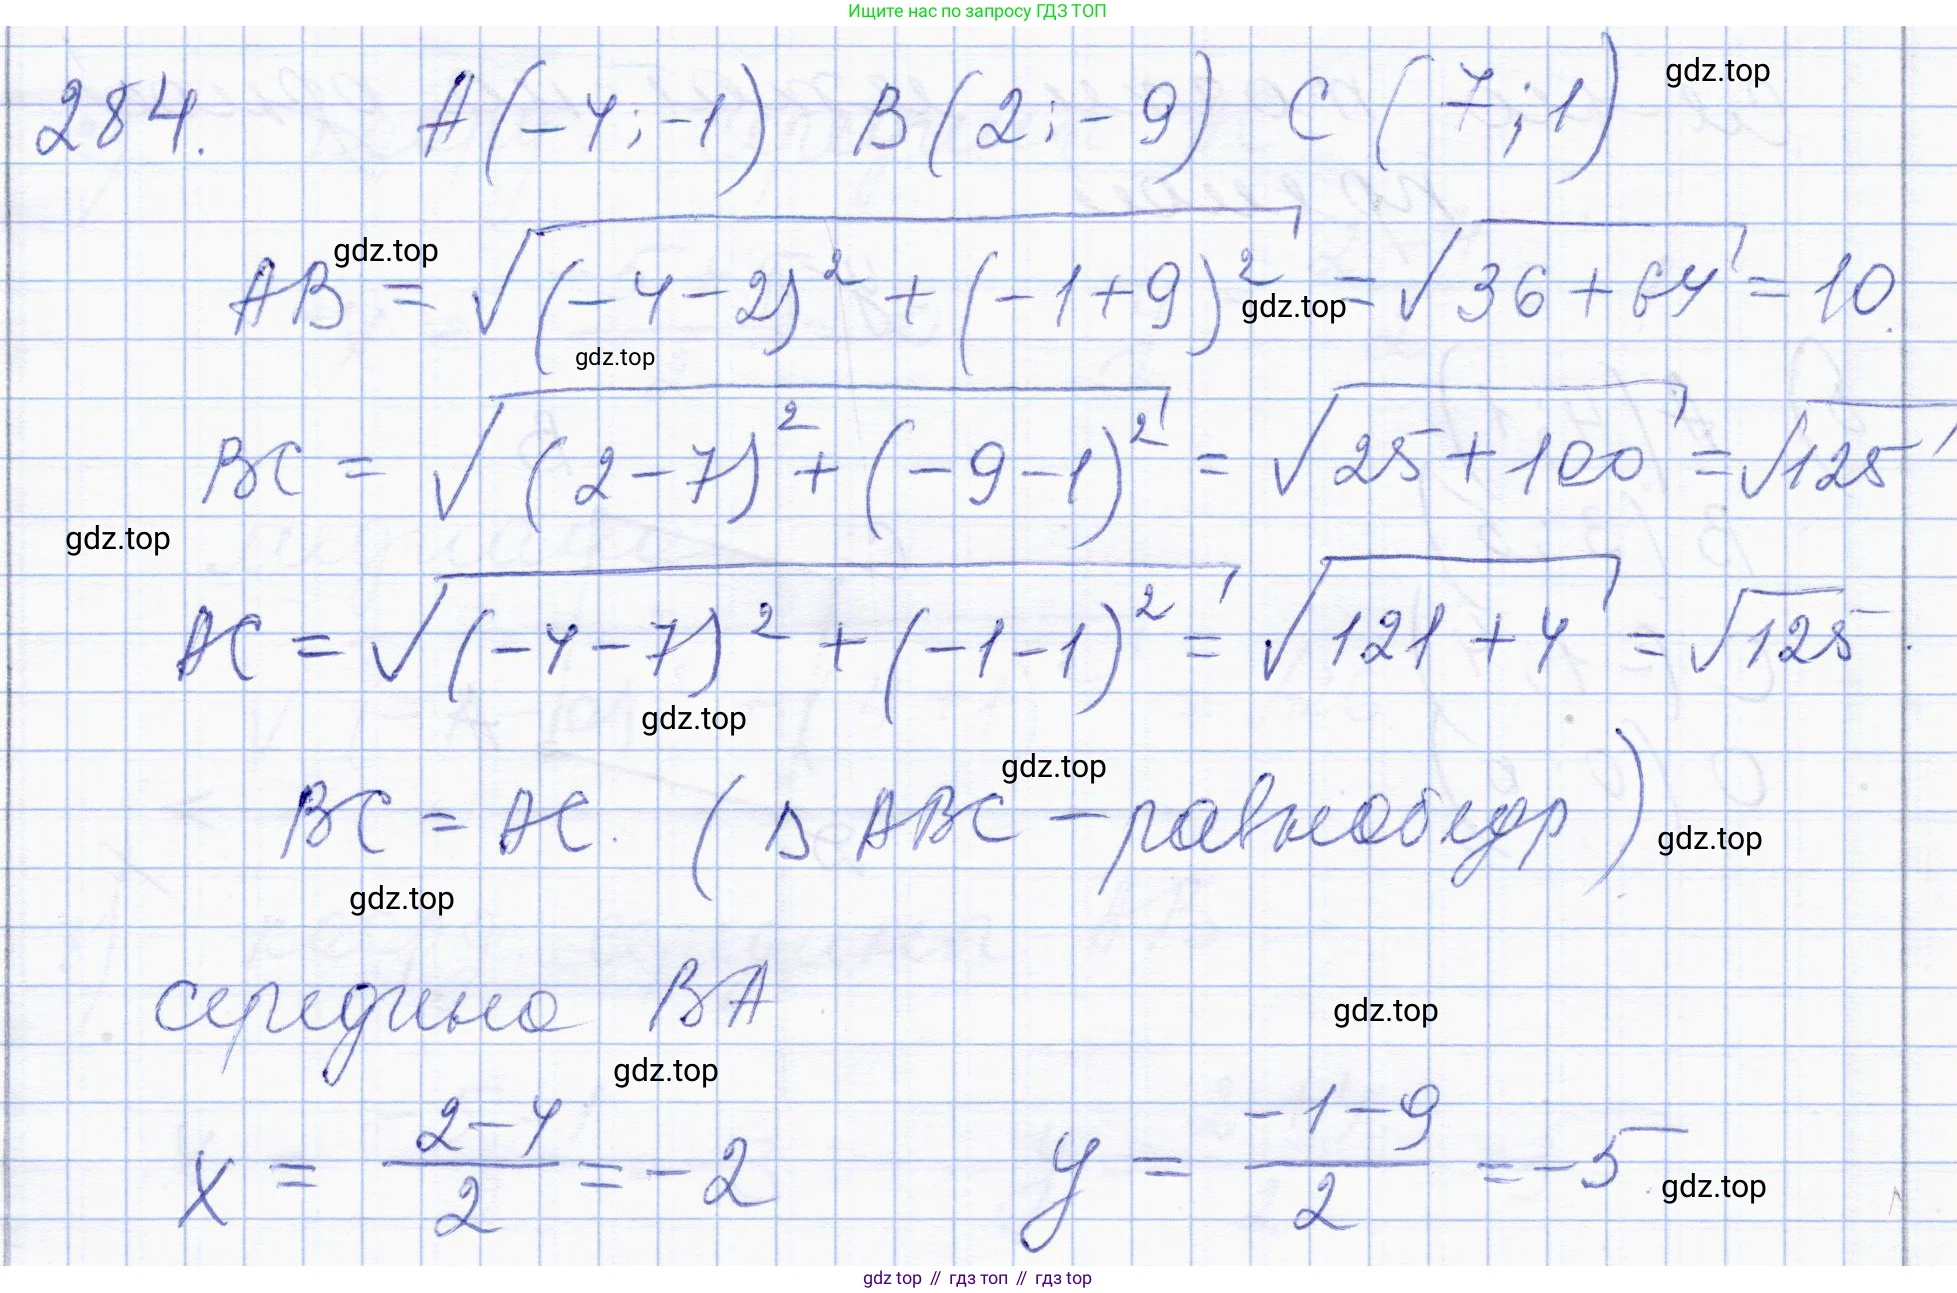 Ищите нас по запросу ГДЗ ТОП
284. A(-4; -1) B(2; -9) C(7; 1)
gdz.top
AB = √((-4-2)² + (-1+9)²) = √(36+64) = 10.
gdz.top
gdz.top
gdz.top
BC = √((2-7)² + (-9-1)²) = √(25+100) = √125
gdz.top
AC = √((-4-7)² + (-1-1)²) = √(121+4) = √125.
gdz.top
gdz.top
BC = AC. (Δ ABC – равнобедр)
gdz.top
gdz.top
середина BA
gdz.top
gdz.top
x = (2-4)/2 = -2 y = (-1-9)/2 = -5
gdz.top
gdz top // гдз топ // гдз top